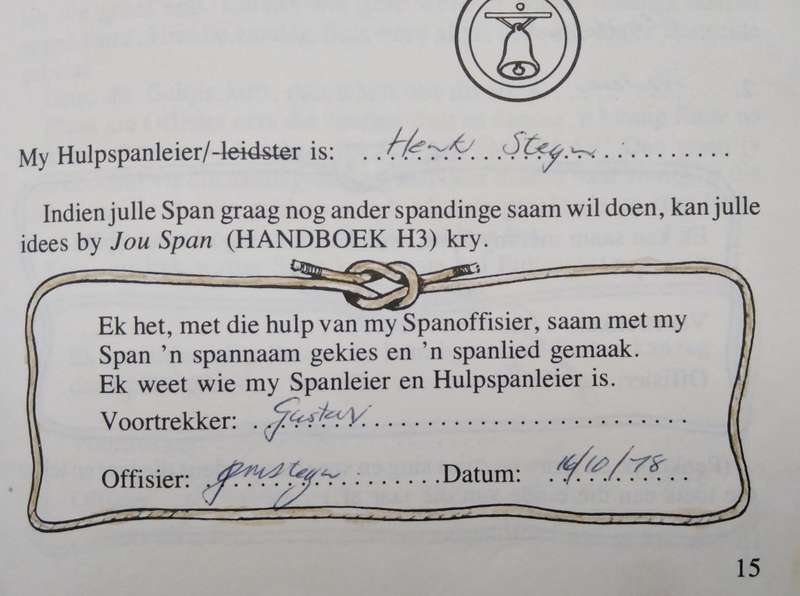 My Hulpspanleier/-leidster is: Henk Steyn
Indien julle Span graag nog ander spandinge saam wil doen, kan julle
idees by Jou Span (HANDBOEK H3) kry.
Ek het, met die hulp van my Spanoffisier, saam met my
Span ’n spannaam gekies en ’n spanlied gemaak.
Ek weet wie my Spanleier en Hulpspanleier is.
Voortrekker: Gustav
Offisier: Datum: 14/10/'78
15